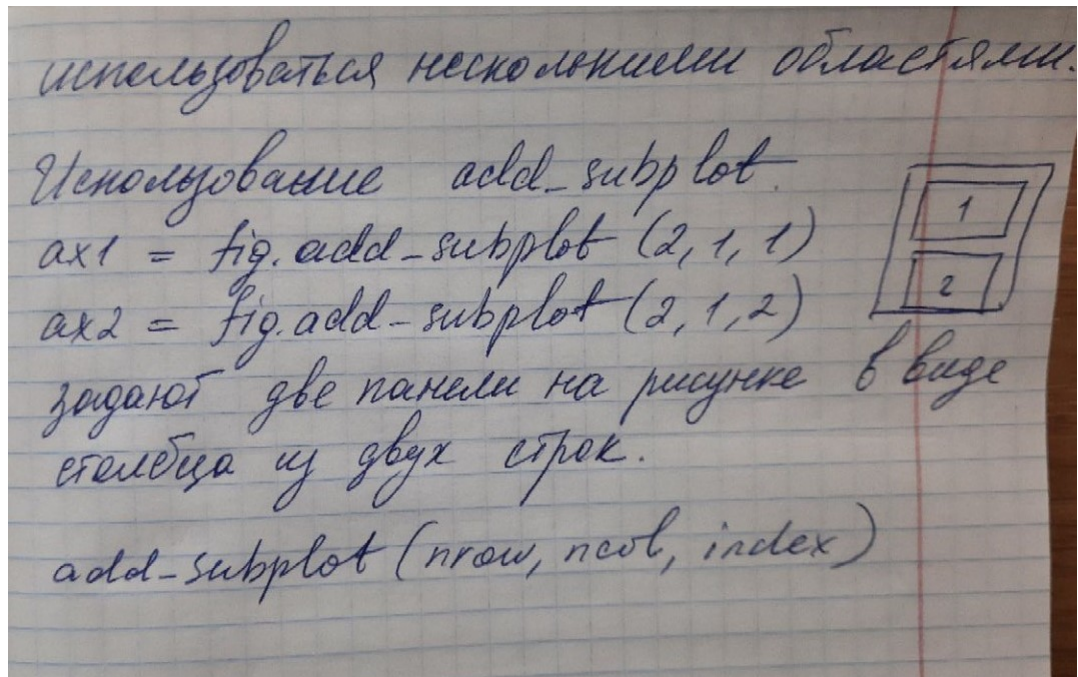 использоваться несколькими областями.
Использование add_subplot.
ax1 = fig.add_subplot (2, 1, 1)
1
ax2 = fig.add_subplot (2, 1, 2)
2
задают две панели на рисунке в виде
столбца из двух строк.
add_subplot (nrow, ncol, index)